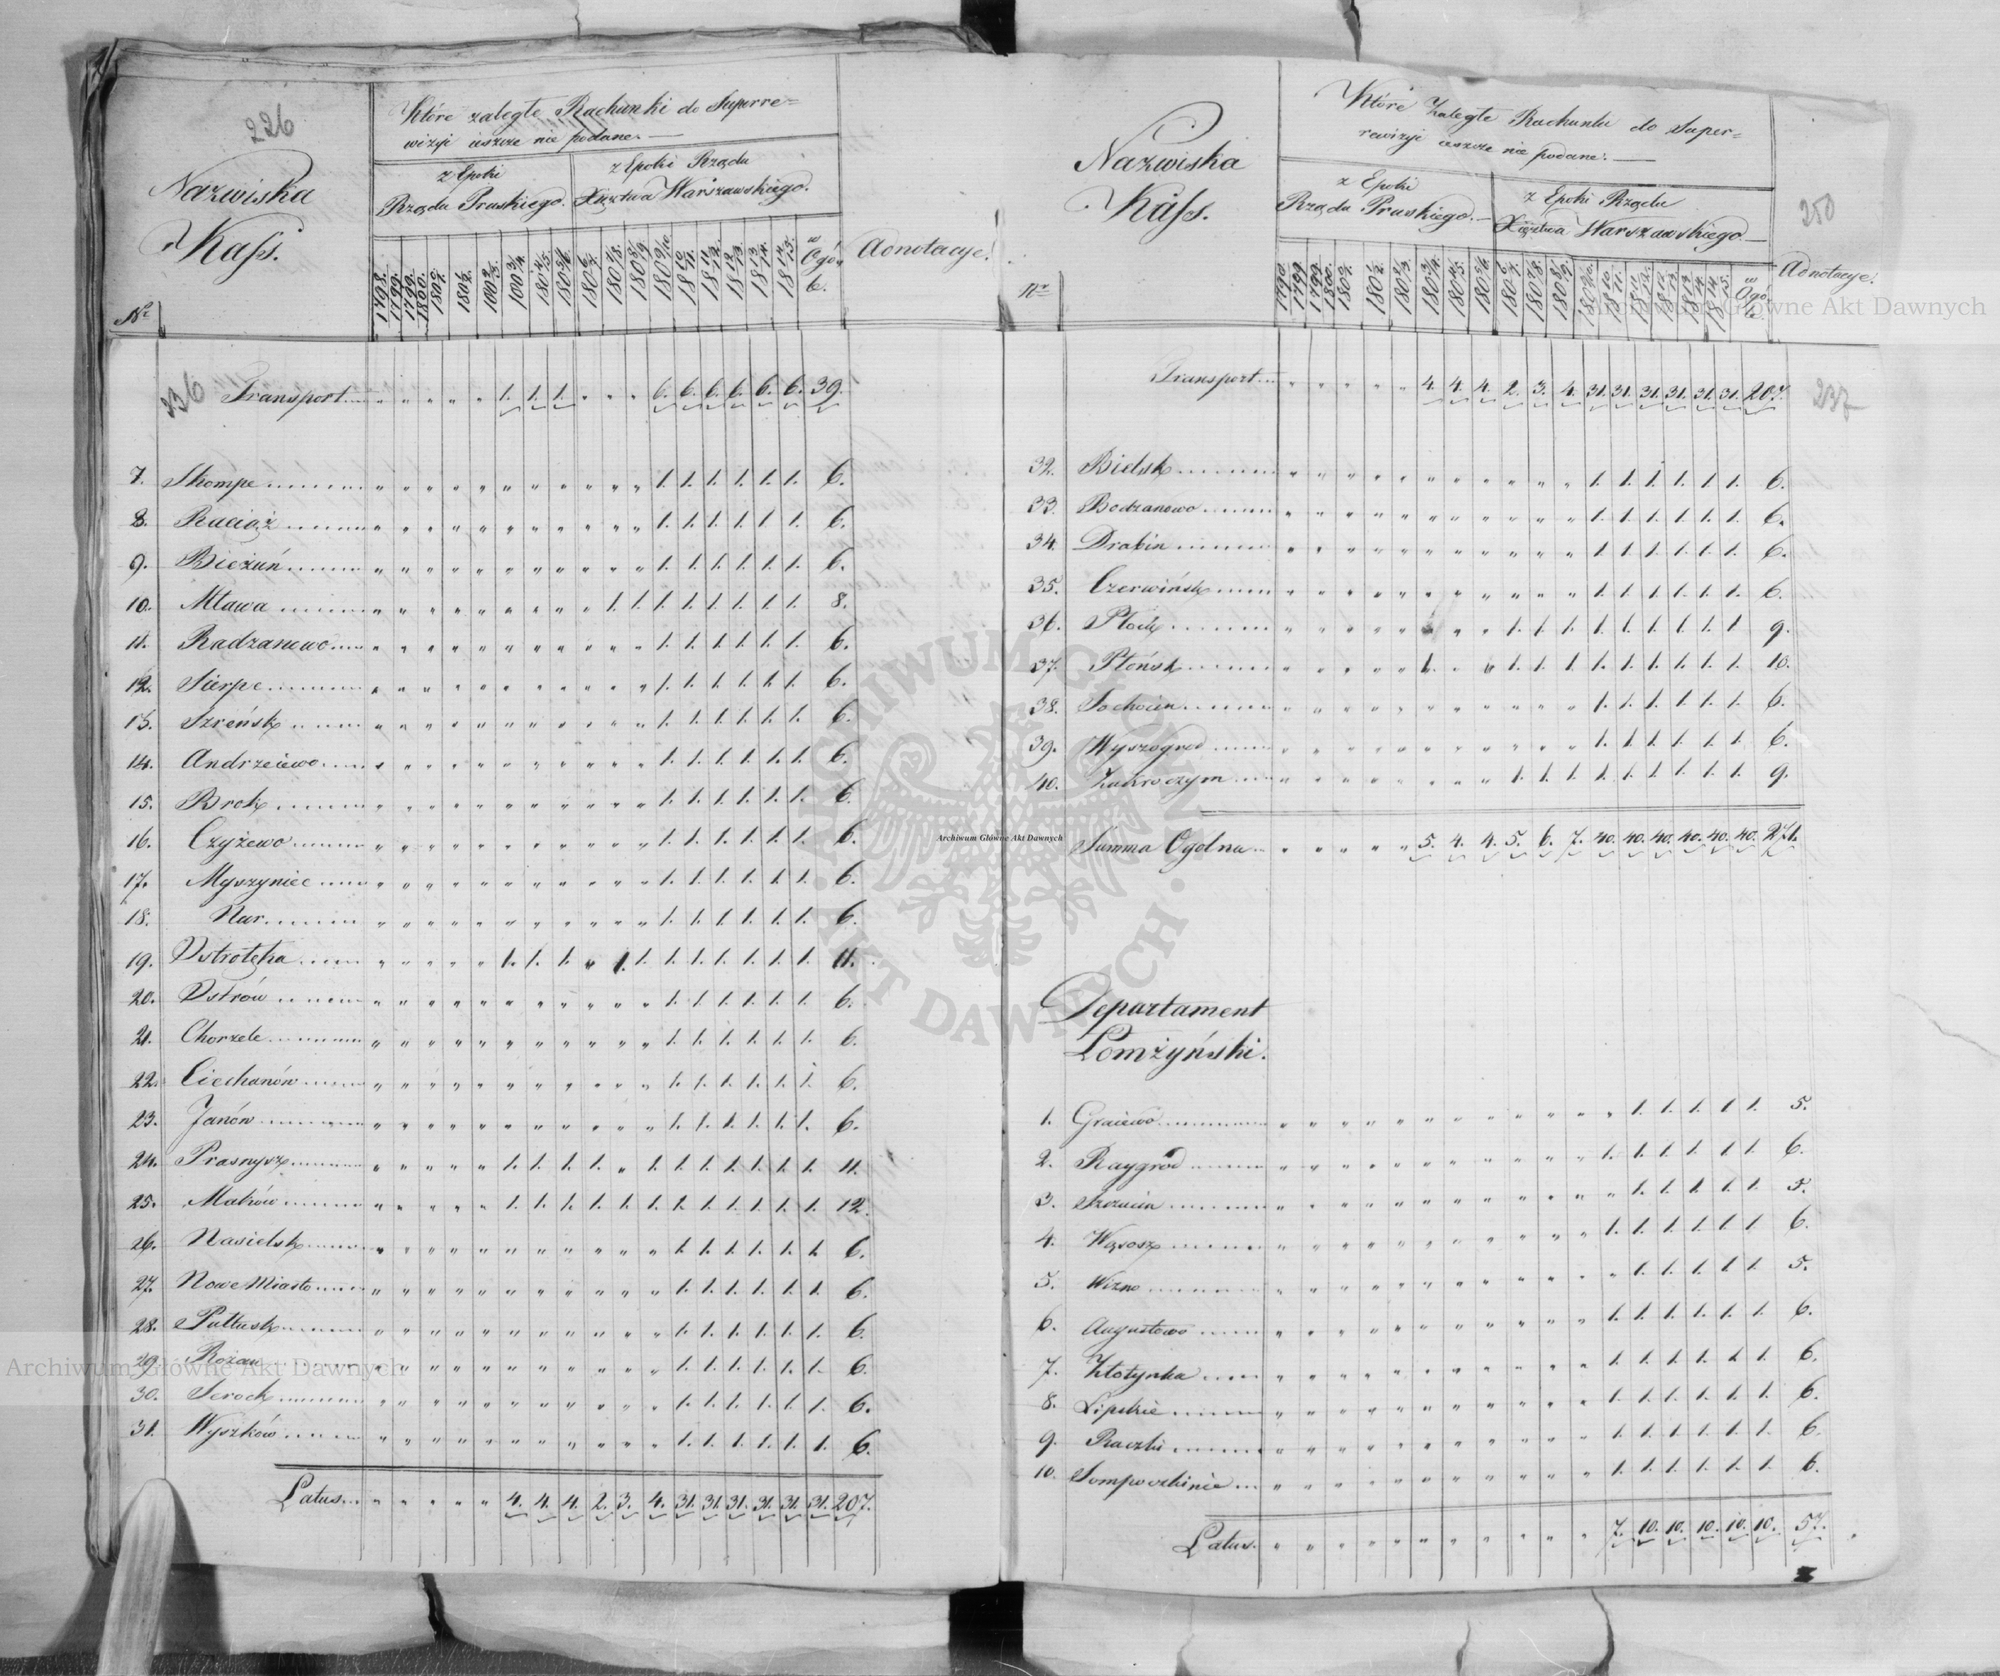 226
Nazwiska
Kass.
Nr
Które zaległe Rachunki do Superre=
wizyi ieszcze nie podane.
z Epoki
Rządu Pruskiego.
z Epoki Rządu
Xięztwa Warszawskiego.
w
Ogó=
le.
Adnotacye.
236 Transport 1. 1. 1. 6. 6. 6. 6. 6. 6. 39.
7. Skompe 1. 1. 1. 1. 1. 1. 6.
8. Raciąż 1. 1. 1. 1. 1. 1. 6.
9. Bieżuń 1. 1. 1. 1. 1. 1. 6.
10. Mława 1. 1. 1. 1. 1. 1. 1. 1. 8.
11. Radzanowo 1. 1. 1. 1. 1. 1. 6.
12. Sierpc 1. 1. 1. 1. 1. 1. 6.
13. Szreńsk 1. 1. 1. 1. 1. 1. 6.
14. Andrzeiewo 1. 1. 1. 1. 1. 1. 6.
15. Brok 1. 1. 1. 1. 1. 1. 6.
16. Czyżewo 1. 1. 1. 1. 1. 1. 6.
17. Myszyniec 1. 1. 1. 1. 1. 1. 6.
18. Nur 1. 1. 1. 1. 1. 1. 6.
19. Ostrołęka 1. 1. 1. 1. 1. 1. 1. 1. 1. 1. 1. 11.
20. Ostrów 1. 1. 1. 1. 1. 1. 6.
21. Chorzele 1. 1. 1. 1. 1. 1. 6.
22. Ciechanów 1. 1. 1. 1. 1. 1. 6.
23. Janów 1. 1. 1. 1. 1. 1. 6.
24. Prasnysz 1. 1. 1. 1. 1. 1. 1. 1. 1. 1. 1. 11.
25. Maków 1. 1. 1. 1. 1. 1. 1. 1. 1. 1. 1. 1. 12.
26. Nasielsk 1. 1. 1. 1. 1. 1. 6.
27. Nowe Miasto 1. 1. 1. 1. 1. 1. 6.
28. Pułtusk 1. 1. 1. 1. 1. 1. 6.
29. Rożan 1. 1. 1. 1. 1. 1. 6.
30. Serock 1. 1. 1. 1. 1. 1. 6.
31. Wyszków 1. 1. 1. 1. 1. 1. 6.
Latus 4. 4. 4. 2. 3. 4. 31. 31. 31. 31. 31. 31. 207.
Nazwiska
Kass.
Nr
Które zaległe Rachunki do Super=
rewizyi ieszcze nie podane.
z Epoki
Rządu Pruskiego.
z Epoki Rządu
Xięztwa Warszawskiego.
w
Ogó=
le.
250
Adnotacye.
Transport 4. 4. 4. 2. 3. 4. 31. 31. 31. 31. 31. 31. 207.
237
32. Bielsk 1. 1. 1. 1. 1. 1. 6.
33. Bodzanowo 1. 1. 1. 1. 1. 1. 6.
34. Drobin 1. 1. 1. 1. 1. 1. 6.
35. Czerwińsk 1. 1. 1. 1. 1. 1. 6.
36. Płock 1. 1. 1. 1. 1. 1. 1. 1. 1. 9.
37. Płońsk 1. 1. 1. 1. 1. 1. 1. 1. 1. 1. 10.
38. Sochocin 1. 1. 1. 1. 1. 1. 6.
39. Wyszogrod 1. 1. 1. 1. 1. 1. 6.
40. Zakroczym 1. 1. 1. 1. 1. 1. 1. 1. 1. 9.
Summa Ogolna 5. 4. 4. 5. 6. 7. 40. 40. 40. 40. 40. 40. 271.
Departament
Łomżyński.
1. Graiewo 1. 1. 1. 1. 1. 5.
2. Raygród 1. 1. 1. 1. 1. 1. 6.
3. Szczucin 1. 1. 1. 1. 1. 5.
4. Wąsosz 1. 1. 1. 1. 1. 1. 6.
5. Wizno 1. 1. 1. 1. 1. 5.
6. Augustowo 1. 1. 1. 1. 1. 1. 6.
7. 1. 1. 1. 1. 1. 1. 6.
8. Lipskie 1. 1. 1. 1. 1. 1. 6.
9. Raczki 1. 1. 1. 1. 1. 1. 6.
10. 1. 1. 1. 1. 1. 1. 6.
Latus 7. 10. 10. 10. 10. 10. 57.
Archiwum Główne Akt Dawnych
Archiwum Główne Akt Dawnych
Archiwum Główne Akt Dawnych
ARCHIWUM GŁÓWNE AKT DAWNYCH